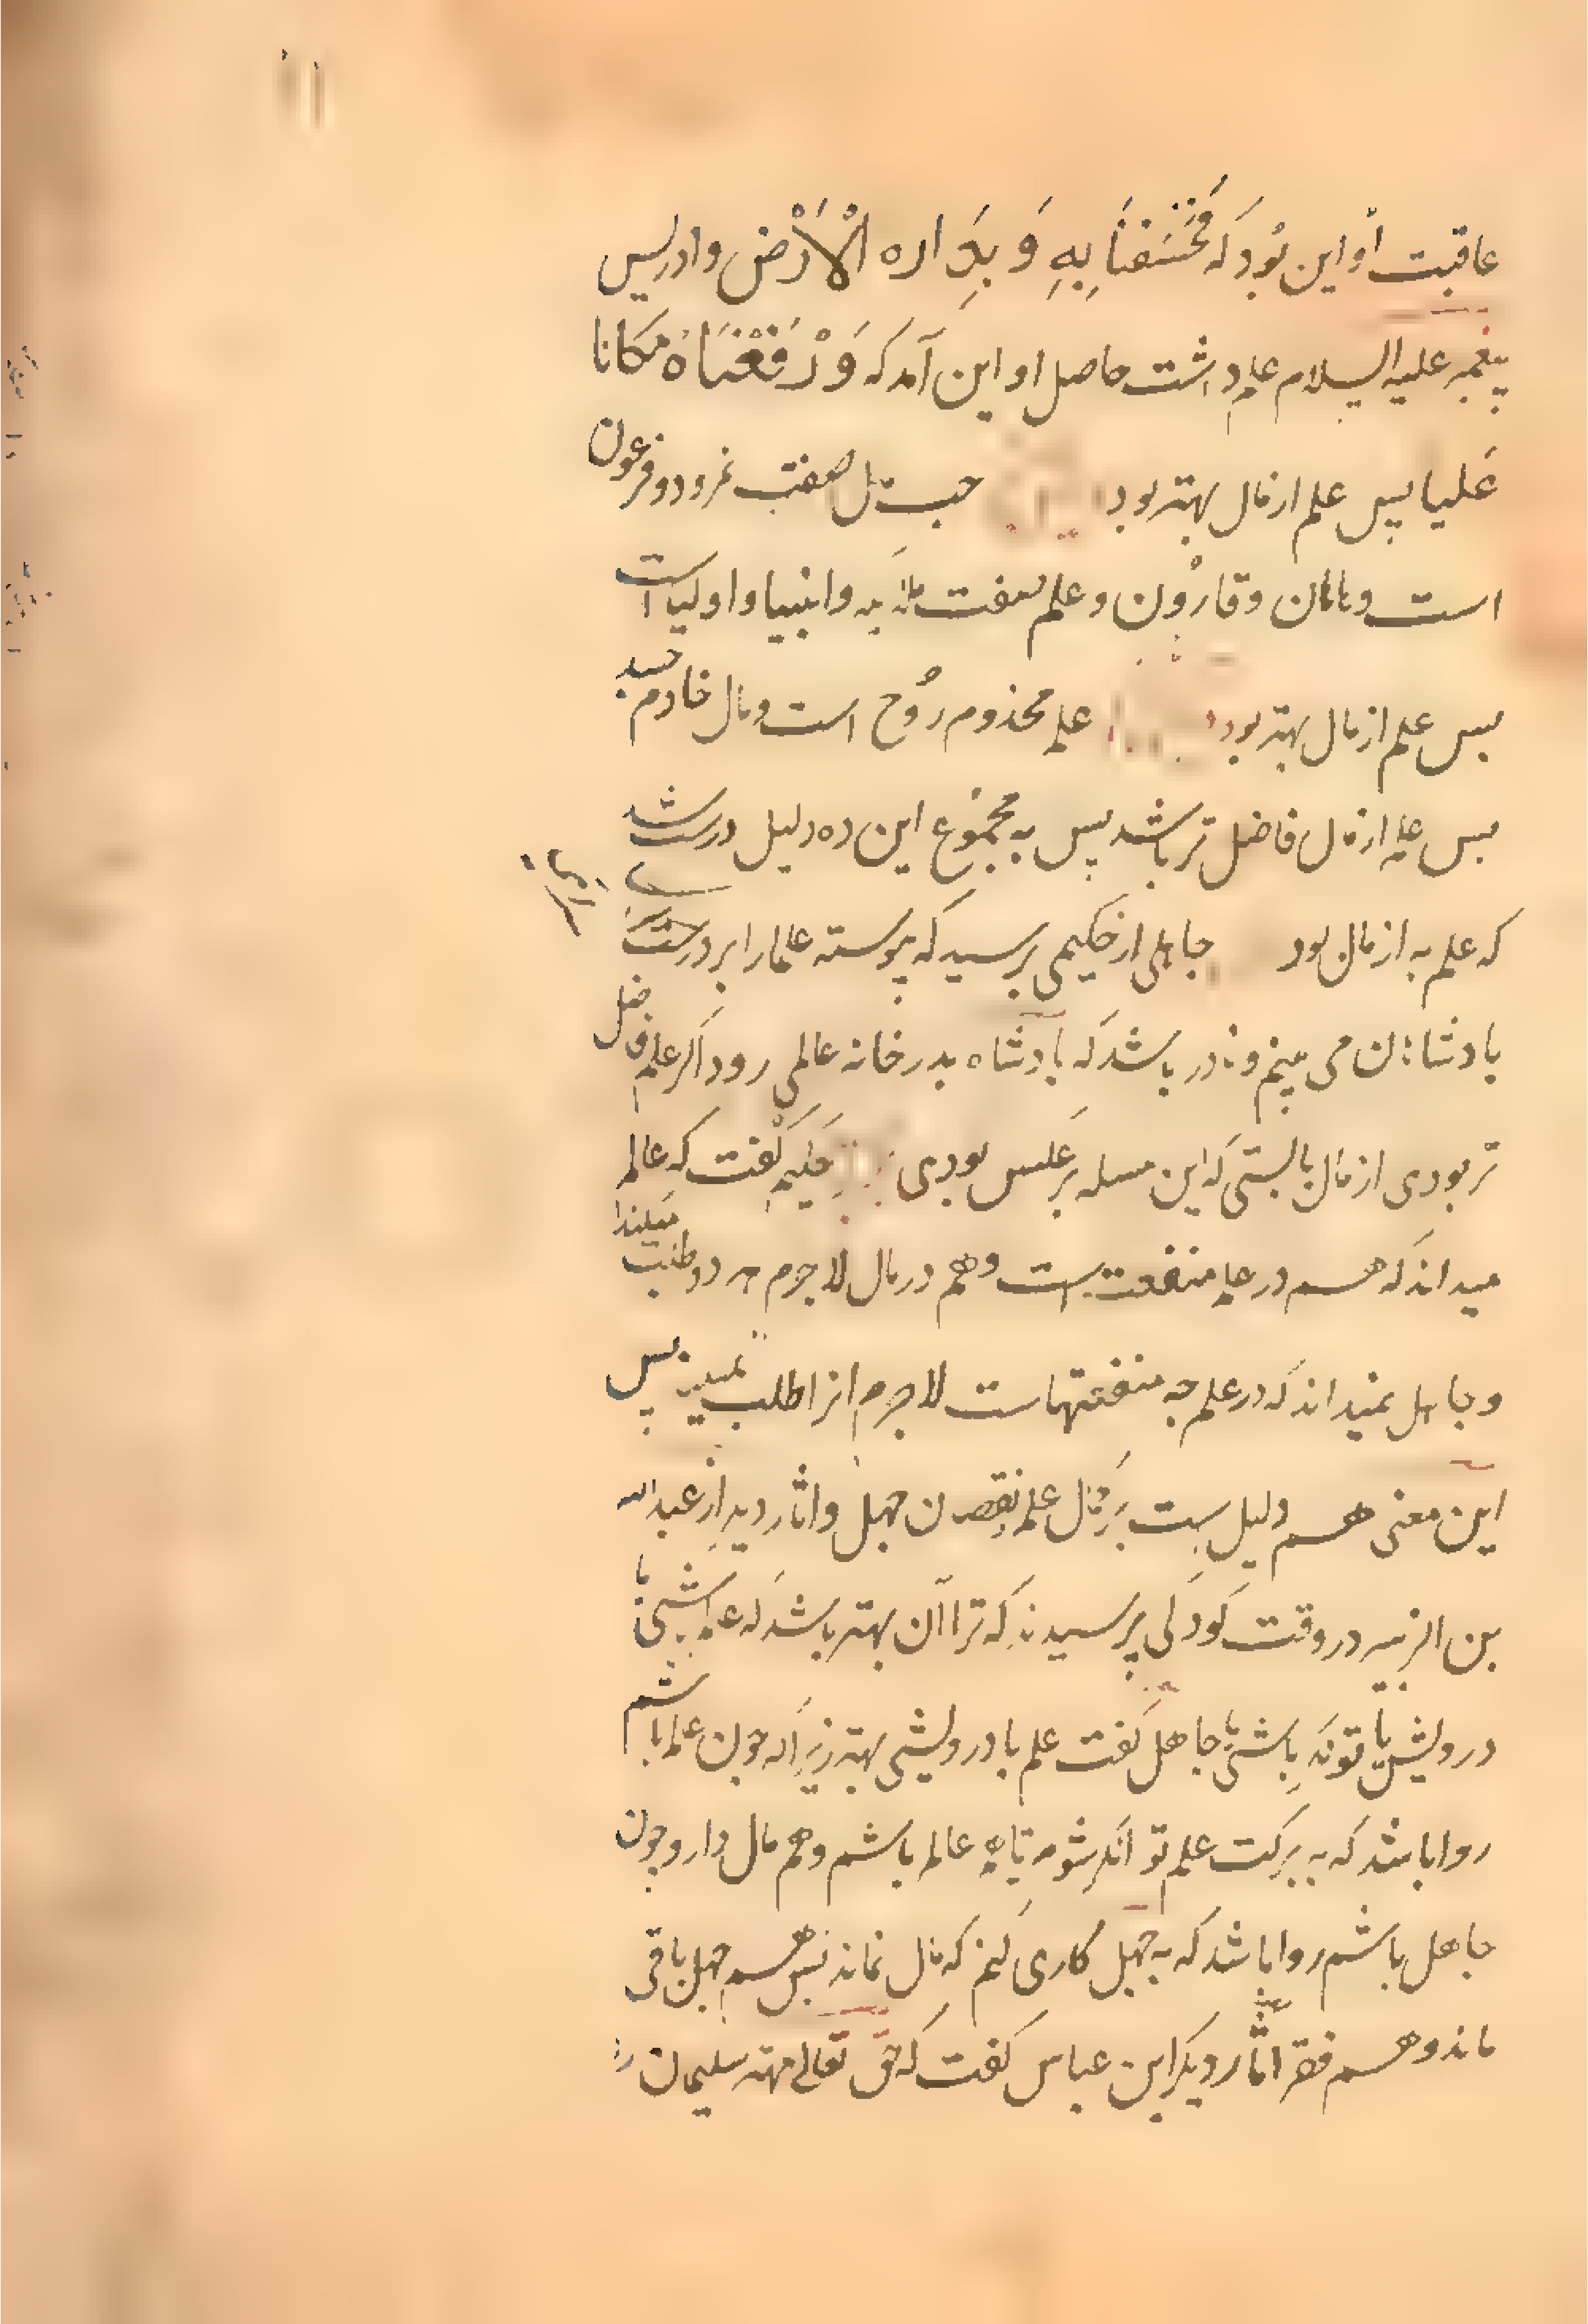 ۱۱
عاقبت او این بود که فَخَسَفنَا بِهِ وَ بِدَاره الْاَرْض و ادریس
پیغمبر علیه السلام علم داشت حاصل او این آمد که وَرَفَعْنَاهُ مکانا
عَلیا پس علم از مال بهتر بود حب مال صفت نمرود و فرعون
است و هامان و قارون و علم صفت ملائکه و انبیا و اولیا است
پس علم از مال بهتر بود علم مخذوم روح است و مال خادم جسد
پس علم از مال فاضل تر باشد پس به مجموع این ده دلیل درست شد
که علم به از مال بود جاهلی از حکیمی پرسید که پیوسته علما را بر در
بادشاهان می بینم و نادر باشد که بادشاه بدر خانه عالمی رود اگر علم فاضل
تر بودی از مال بایستی که این مسله برعکس بودی حکیم گفت که عالم
میداند که هسم در علم منفعت است و هم در مال لاجرم هر دو طلب میکند
و جاهل نمیداند که در علم چه منفعتهاست لاجرم انرا طلب نمیکند پس
این معنی هسم دلیل است بر کمال علم نقصان جهل و اثار دیگر از عبدالله
بن الزبیر در وقت کودکی پرسیدند که ترا آن بهتر باشد که عالم باشی با
درویشی یا توانگر باشی با جاهل گفت علم با درویشی بهتر زیرا که چون عالم باشم
روا باشد که به برکت علم توانگر شوم تا هم عالم باشم و هم مال دار و چون
جاهل باشم روا باشد که به جهل کاری کنم که مال نماند پس هسم جهل باقی
ماند و هسم فقر اثار دیگر ابن عباس گفت که حق تعالی مهتر سلیمان را